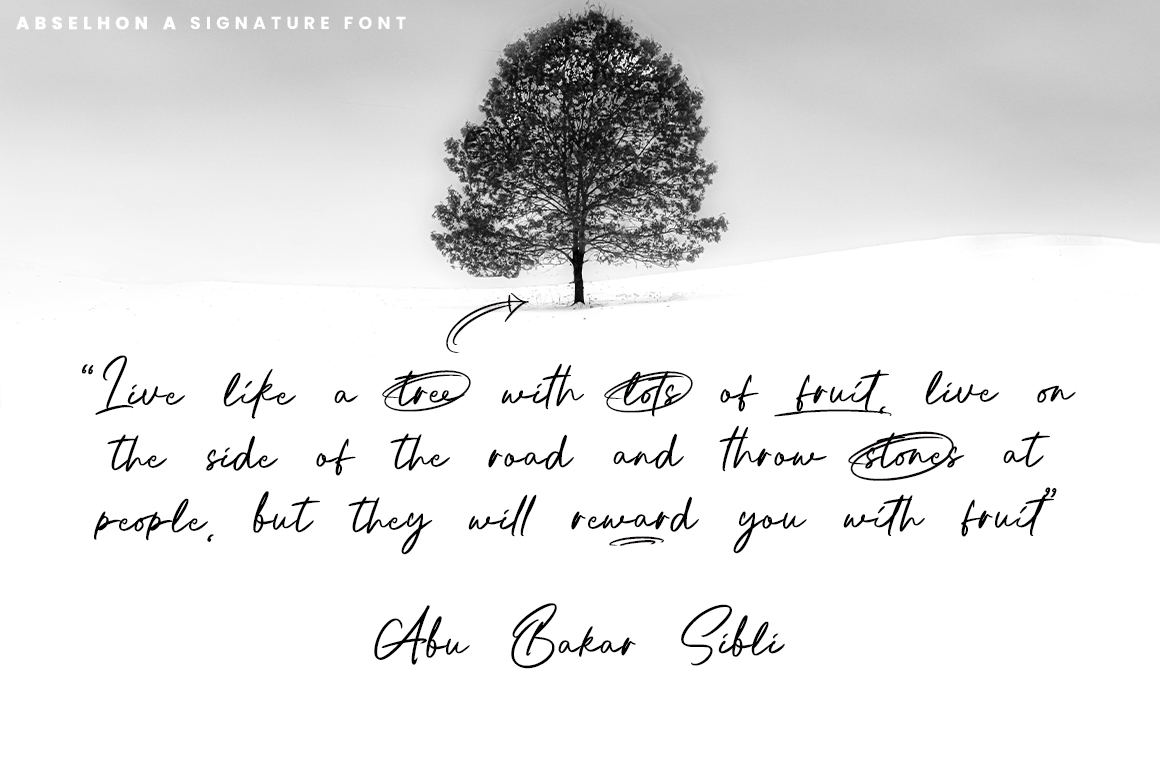 ABSELHON A SIGNATURE FONT
“Live like a tree with lots of fruit, live on
the side of the road and throw stones at
people, but they will reward you with fruit”
Abu Bakar Sibli